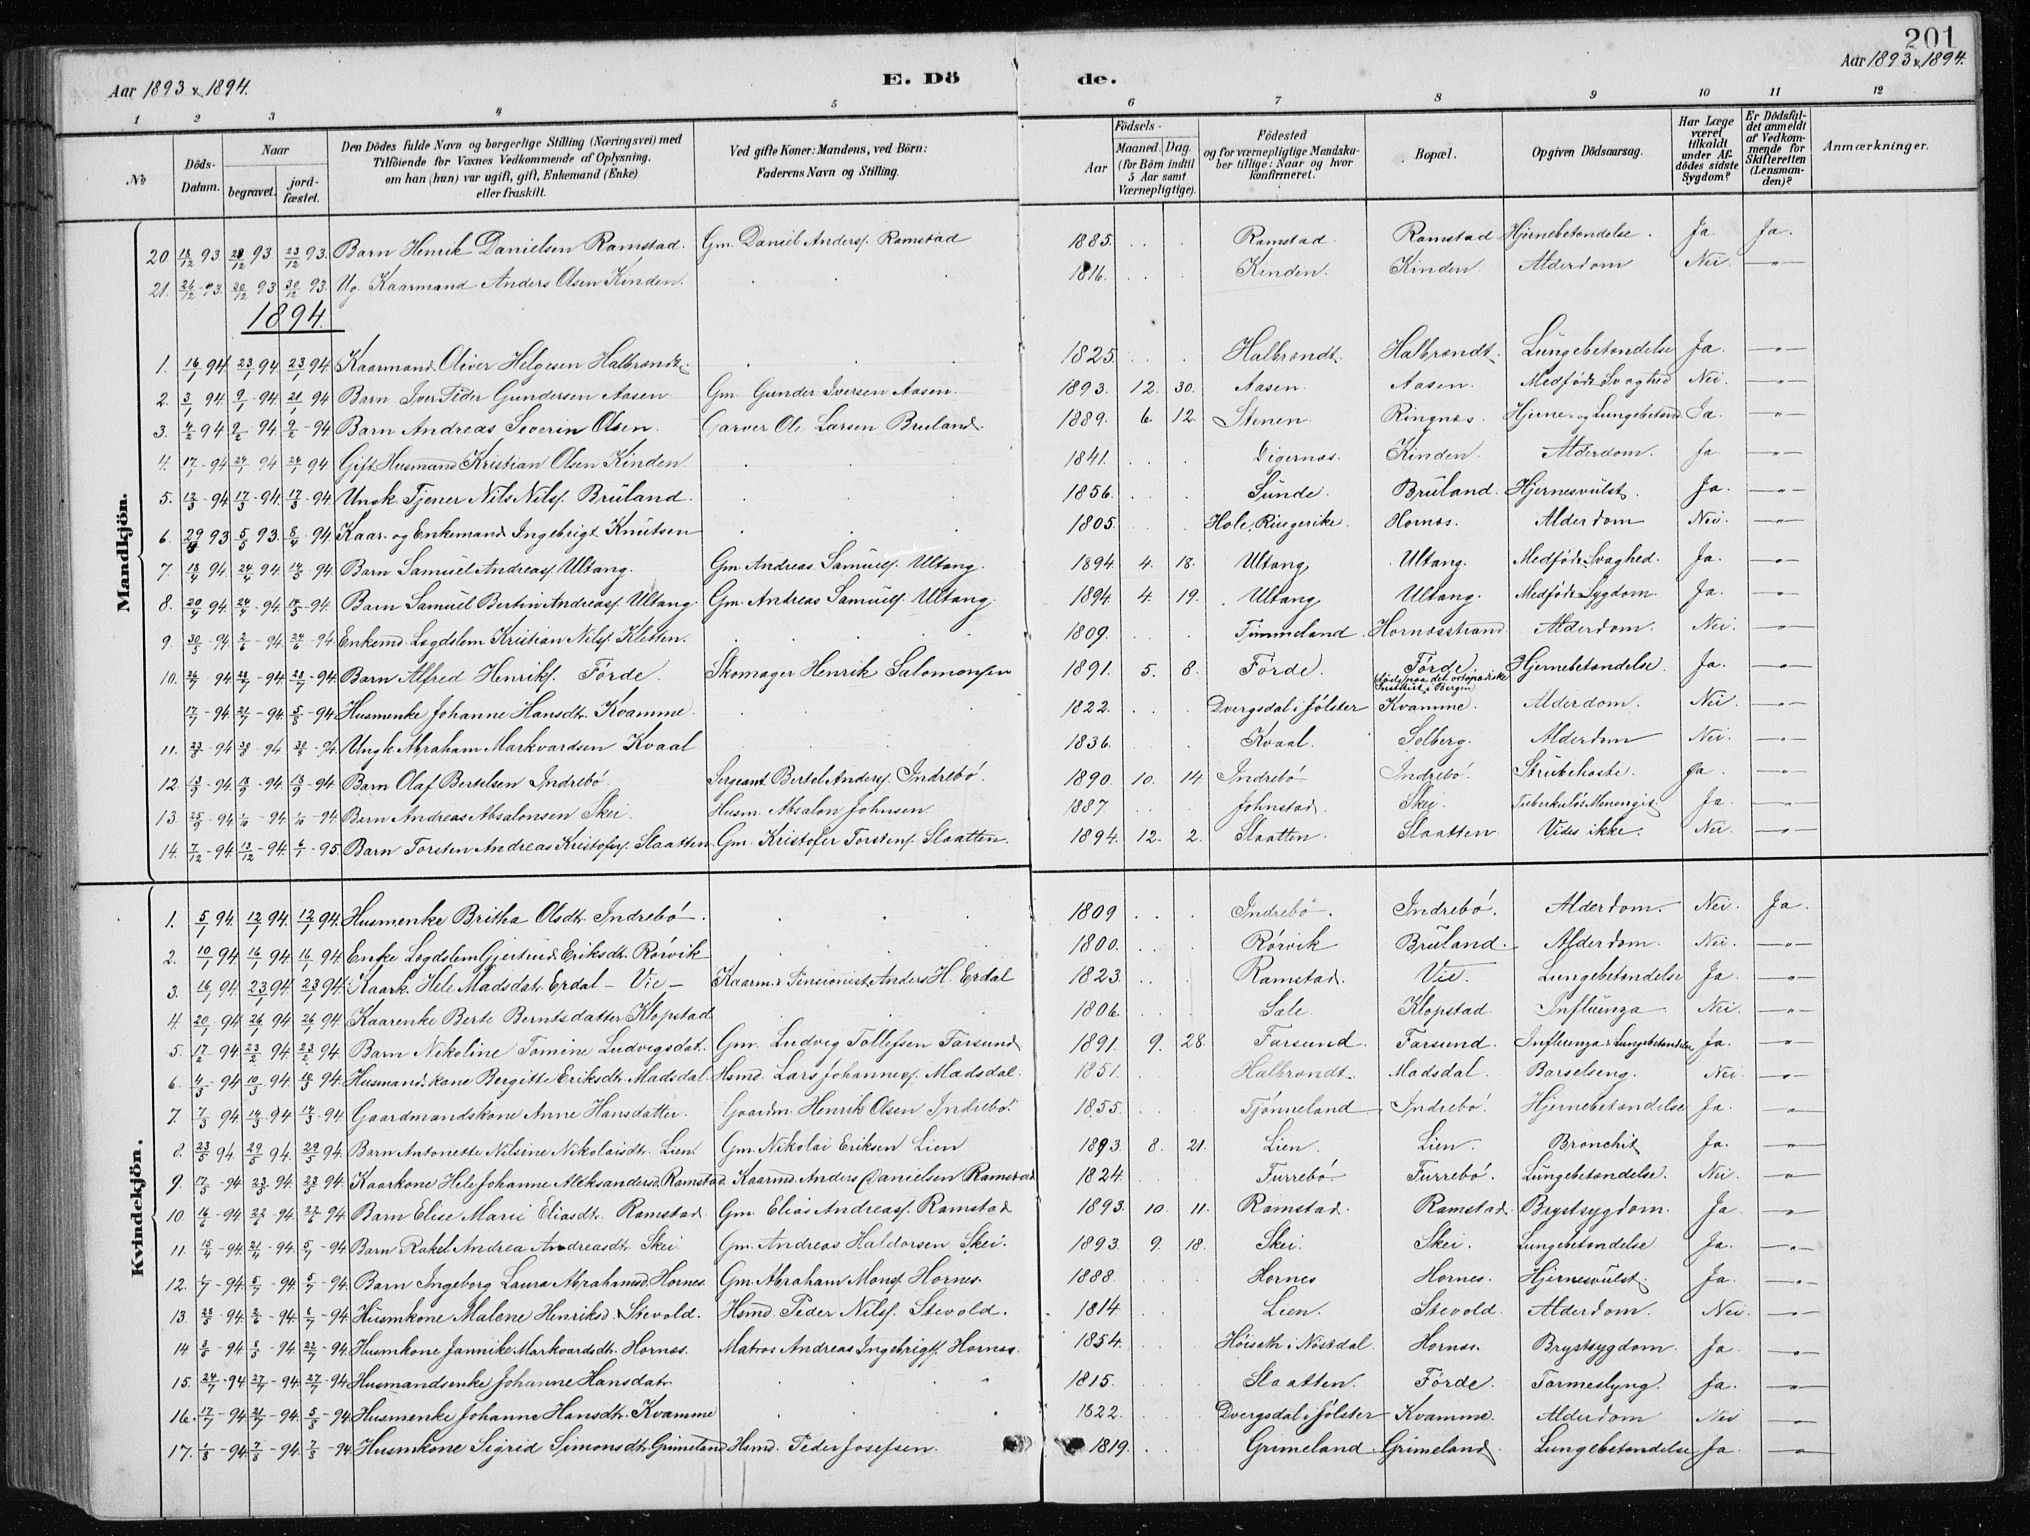 201
Aar 1893 & 1894.
E. Dö
de.
Aar 1893 & 1894.
1 2 3 4 5 6 7 8 9 10 11 12
No
Döds-Datum.
Naar
begravet.
jord-fæstet.
Den Dödes fulde Navn og borgerlige Stilling (Næringsvei) med
Tilföiende for Voxnes Vedkommende af Oplysning,
om han (hun) var ugift, gift, Enkemand (Enke)
eller fraskilt.
Ved gifte Koner: Mandens, ved Börn:
Faderens Navn og Stilling.
Födsels-
Aar
Maaned. Dag.
(for Börn indtil
5 Aar samt
Værnepligtige).
Födested
og for værnepligtige Mandska-
ber tillige: Naar og hvor
konfirmeret.
Bopæl.
Opgiven Dödsaarsag.
Har Læge
været
tilkaldt
under Af-
dödes sidste
Sygdom?
Er Dödsfal-
det anmeldt
af Vedkom-
mende for
Skifteretten
(Lensman-
den)?
Anmærkninger.
Mandkjön.
20 18/12 93 28/12 93 23/12 93. Barn Henrik Danielsen Ramstad. Gm. Daniel Anders. Ramstad 1885. Ramstad. Ramstad Hjernebetændelse. Ja. Ja.
21. 26/12 93. 30/12 93 30/12 93. Ug. Kaarmand Anders Olsen Kinden. 1816. Kinden. Kinden. Alderdom Nei —"—
1894.
1. 16/1 94 23/1 94 23/1 94 Kaarmand Oliver Helgesen Halbrendt. 1825 Halbrendt. Halbrendt. Lungebetændelse Ja. —"—
2. 3/1 94. 9/1 94 21/1 94 Barn Iver Peder Gundersen Aasen Gm. Gunder Iversen Aasen. 1893. 12. 30. Aasen. Aasen. Medfødt Svaghed Nei. —"—
3. 4/2 94 9/2 94. 9/2 94 Barn Andreas Severin Olsen. Garver Ole Larsen Bruland. 1889. 6 12. Stenen. Ringnes. Hjerne- og Lungebetænd. Ja. —"—
4. 17/1 94 24/1 94 24/1 94 Gift Husmand Kristian Olsen Kinden 1841. Digernes. Kinden. Alderdom. Ja. —"—
5. 13/3 94 17/3 94. 17/3 94. Ungk. Tjener Nils Nils. Bruland. 1856. Sunde. Bruland. Hjernesvulst. Ja. —"—
6. 29/ 93 5/5 93. 8/4 94 Kaar- og Enkemand Ingebrigt Knutsen 1805. Hole, Ringerike. Hornes. Alderdom Nei. —"—
7. 18/4 94. 24/4 94 14/5 94. Barn Samuel Andreas. Ultang. Gm. Andreas Samuels. Ultang. 1894 4. 18. Ultang Ultang. Medfødt Svaghed. Ja. —"—
8. 20/4 94. 24/4 94. 14/5 94. Barn Samuel Bertin Andreas. Ultang Gm. Andreas Samuels. Ultang. 1894. 4. 19. Ultang Ultang. Medfødt Sygdom. Ja. —"—
9. 30/5 94. 2/6 94. 24/6 94 Enkemd. Lægdslem Kristian Nils. Kletten. 1809. Timmeland. Hornesstrand Alderdom. Nei. —"—
10. 94. 94. 94. Barn Alfred Henriks. Førde. Skomager Henrik Salomonsen 1891. 5. 8. Førde. Førde. (døde paa det ortopædiske Institut i Bergen) Hjernebetændelse. Ja. —"—
17/7 94. 21/7 94. 5/8 94. Husmenke Johanne Hansdtr. Kvamme. 1822. Dvergsdal i Jølster Kvamme. Alderdom. Nei —"—
11. 94 94 94. Ungk. Abraham Markvardsen Kvaal 1836. Kvaal. Solberg. Alderdom Nei. —"—
12. 13/9 94. 18/9 94. 13/9 94 Barn Olaf Bertelsen Indrebö Sergeant Bertel Anders. Indrebö. 1890 10. 14. Indrebö Indrebö. Strubehoste. Ja. —"—
13. 25/9 94. 1/10 94 1/10 94. Barn Andreas Absalonsen Skei. Husm. Absalon Johnsen 1887 Johnstad. Skei. Tuberkuløs Menengit. Ja. —"—
14. 7/12 94. 13/12 94. 6/1 95 Barn Torsten Andreas Kristofers. Slaatten. Gm. Kristofer Torstens. Slaatten. 1894. 12. 2. Slaatten. Slaatten Vides ikke. Nei —"—
Kvindekjön.
1. 5/1 94. 12/1 94. 12/1 94. Husmenke Britha Olsdtr. Indrebö. 1809 Indrebö. Indrebö. Alderdom. Nei. Ja.
2. 10/1 94. 16/1 94. 16/1 94 Enke Lægdslem Gjertrud Eriksdtr. Rörvik 1800. Rörvik Bruland. Alderdom. Nei. —"—
3. 16/1 94. 23/1 94. 23/1 94. Kaark. Hele Madsdatr. Erdal - Vie - Kaarm. & Pensionist Anders H. Erdal 1823. Ramstad. Vie. Lungebetændelse Ja. —"—
4. 20/1 94 26/1 94 26/1 94. Kaarenke Berte Berntsdatter Klopstad 1806. Sæle. Klopstad. Influenza Nei. —"—
5. 17/2 94 23/2 94. 23/2 94. Barn Nikoline Tomine Ludvigsdat. Gm. Ludvig Tollefsen Farsund 1891. 9. 28. Farsund. Farsund. Influenza & Lungebetændelse Ja. —"—
6. 4/3 94 10/3 94. 94. Husmandskone Bergitte Eriksdtr. Madsdal Hsmd. Lars Johannes. Madsdal. 1851. Halbrendt. Madsdal. Barselseng. Nei. —"—
7. 7/3 94. 14/3 94 14/3 94 Gaardmandskone Anne Hansdatter. Gaardm. Henrik Olsen Indrebö. 1855. Tjønneland Indrebö. Hjernebetændelse Ja. —"—
8. 23/5 94. 29/5 94. 29/5 94. Barn Antonette Nilsine Nikolaisdtr. Lien. Gm. Nikolai Eriksen Lien 1893. 8. 21. Lien. Lien. Bronchit Ja. —"—
9. 17/5 94 23/5 94. 23/5 94. Kaarkone Hele Johanne Aleksandersd. Ramstad Kaarmd. Anders Danielsen Ramstad 1824. Furrebö. Furrebö. Lungebetændelse. Nei —"—
10 16/6 94 22/6 94 22/6 94 Barn Elise Marie Eliasdtr. Ramstad Gm. Elias Andreas. Ramstad 1893. 10. 11. Ramstad. Ramstad. Brystsygdom. Ja. —"—
11. 15/4 94. 21/4 94. 5/7 94 Barn Rakel Andrea Andreasdtr. Skei Gm. Andreas Haldorsen Skei. 1893. 9. 18. Skei. Skei. Lungebetændelse Ja. —"—
12. 1/7 94 5/7 94. 5/7 94. Barn Ingeborg Laura Abrahamsd. Hornes. Gm. Abraham Mons. Hornes. 1888. Hornes Hornes. Hjernesvulst. Ja. —"—
13. 28/5 94. 2/6 94. 8/7 94. Husmkone Malene Henriksd. Stevold. Hsmd. Peder Nils. Stevold. 1814 Lien. Stevold. Alderdom. Nei. —"—
14 94 94 22/7 94. Husmkone Jannike Markvardsdtr. Hornes. Matros Andreas Ingebrigts. Hornes. 1854. Høiseth i Nöstdal. Hornes. Brystsygdom. Ja. —"—
15. 24/7 94 27/7 94. 27/7 94 Husmandsenke Johanne Hansdatr. 1815. Slaatten. Førde. Tarmeslyng. Ja. —"—
16. 17/7 94. 21/7 94. 5/8 94. Husmenke Johanne Hansdtr. Kvamme 1822. Dvergsdal i Jølster Kvamme. Alderdom Nei —"—
17. 1/8 94. 7/8 94. 7/8 94. Husmkone Sigrid Simonsdtr. Grimeland Hsmd. Peder Josefsen. 1819. Grimeland. Grimeland. Lungebetændelse Ja. —"—